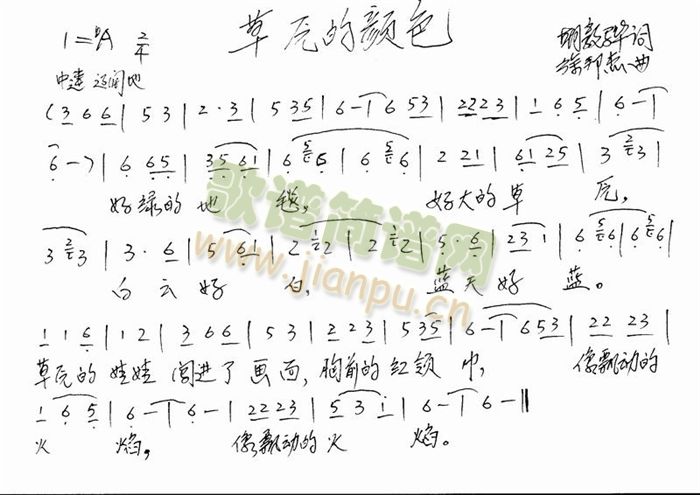 草原的颜色
1=ᵇA 2/4
胡敦骅词
徐邦杰曲
中速 辽阔地
(3 6 6 | 5 3 | 2·3 | 5 35 | 6 - | 6 53 | 22 23 | 1 6 5 | 6 - |
6 -) | 6 65 | 35 61 | 6 56 | 6 56 | 2 21 | 61 25 | 3 23 |
好绿的地 毯, 好大的草 原,
3 23 | 3·6 | 5 61 | 2 12 | 2 12 | 5·6 | 23 1 | 6 56 | 6 56 |
白云好 白, 蓝天好 蓝。
1 1 6 | 1 2 | 3 66 | 5 3 | 2 23 | 5 35 | 6 - | 6 53 | 22 23 |
草原的娃娃 闯进了画面,胸前的红领 巾, 像飘动的
1 6 5 | 6 - | 6 - | 22 23 | 5 3 1 | 6 - | 6 - ||
火 焰, 像飘动的火 焰。
歌谱简谱网
www.jianpu.cn